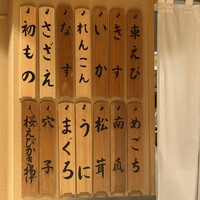 車えび
きす
いか
れんこん
なす
さざえ
初もの
めごち
南瓜
松茸
うに
まぐろ
穴子
桜えびかき揚げ